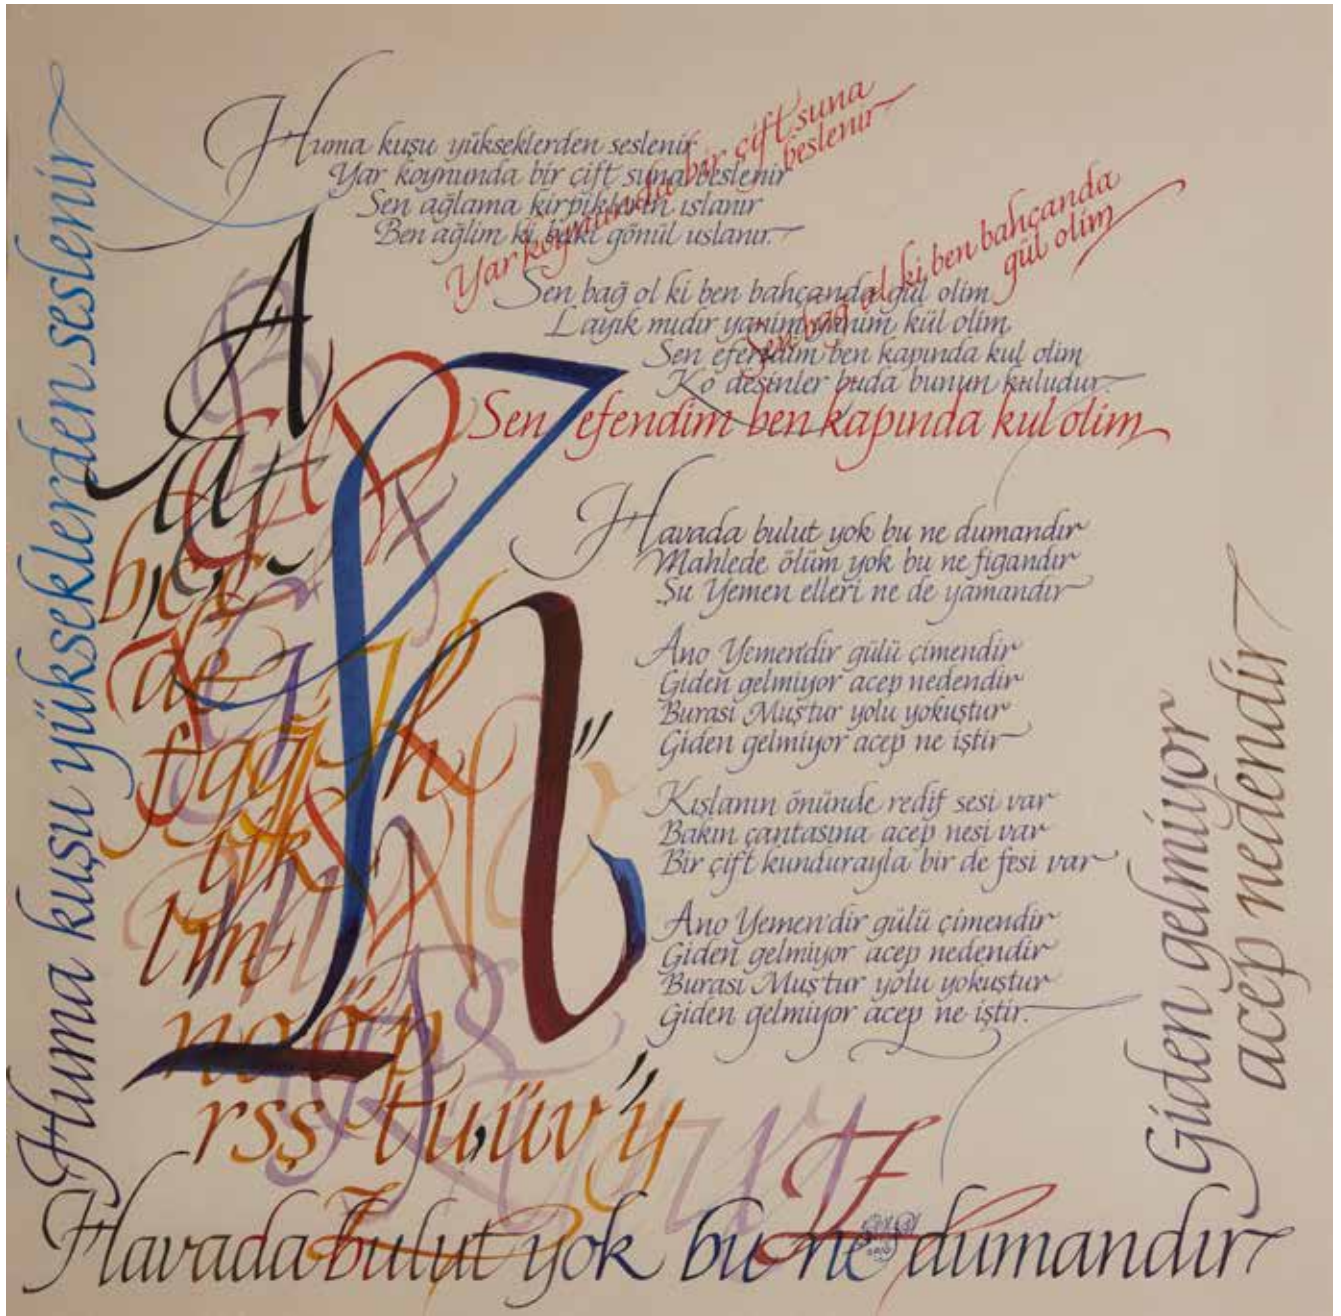 Huma kuşu yükseklerden seslenir
Huma kuşu yükseklerden seslenir
Yar koynunda bir çift suna beslenir
Sen ağlama kirpiklerin ıslanır
Ben ağlim ki belki gönül uslanır.
Yar koynunda bir çift suna
beslenir
Sen bağ ol ki ben bahçanda gül olim
Layık mıdır yanim yanim kül olim
Sen efendim ben kapında kul olim
Ko desinler buda bunun kuludur.
Sen bağ ol ki ben bahçanda
gül olim
Sen efendim ben kapında kul olim
Havada bulut yok bu ne dumandır
Mahlede ölüm yok bu ne figandır
Şu Yemen elleri ne de yamandır
Ano Yemen'dir gülü çimendir
Giden gelmiyor acep nedendir
Burası Muştur yolu yokuştur
Giden gelmiyor acep ne iştir
Kışlanın önünde redif sesi var
Bakın çantasına acep nesi var
Bir çift kundurayla bir de fesi var
Ano Yemen'dir gülü çimendir
Giden gelmiyor acep nedendir
Burası Muştur yolu yokuştur
Giden gelmiyor acep ne iştir.
Giden gelmiyor
acep nedendir
A
a
b c ç
d e
f g ğ h
ı i k
l m
n o ö p
r s ş t u ü v y
Z
Havada bulut yok bu ne dumandır